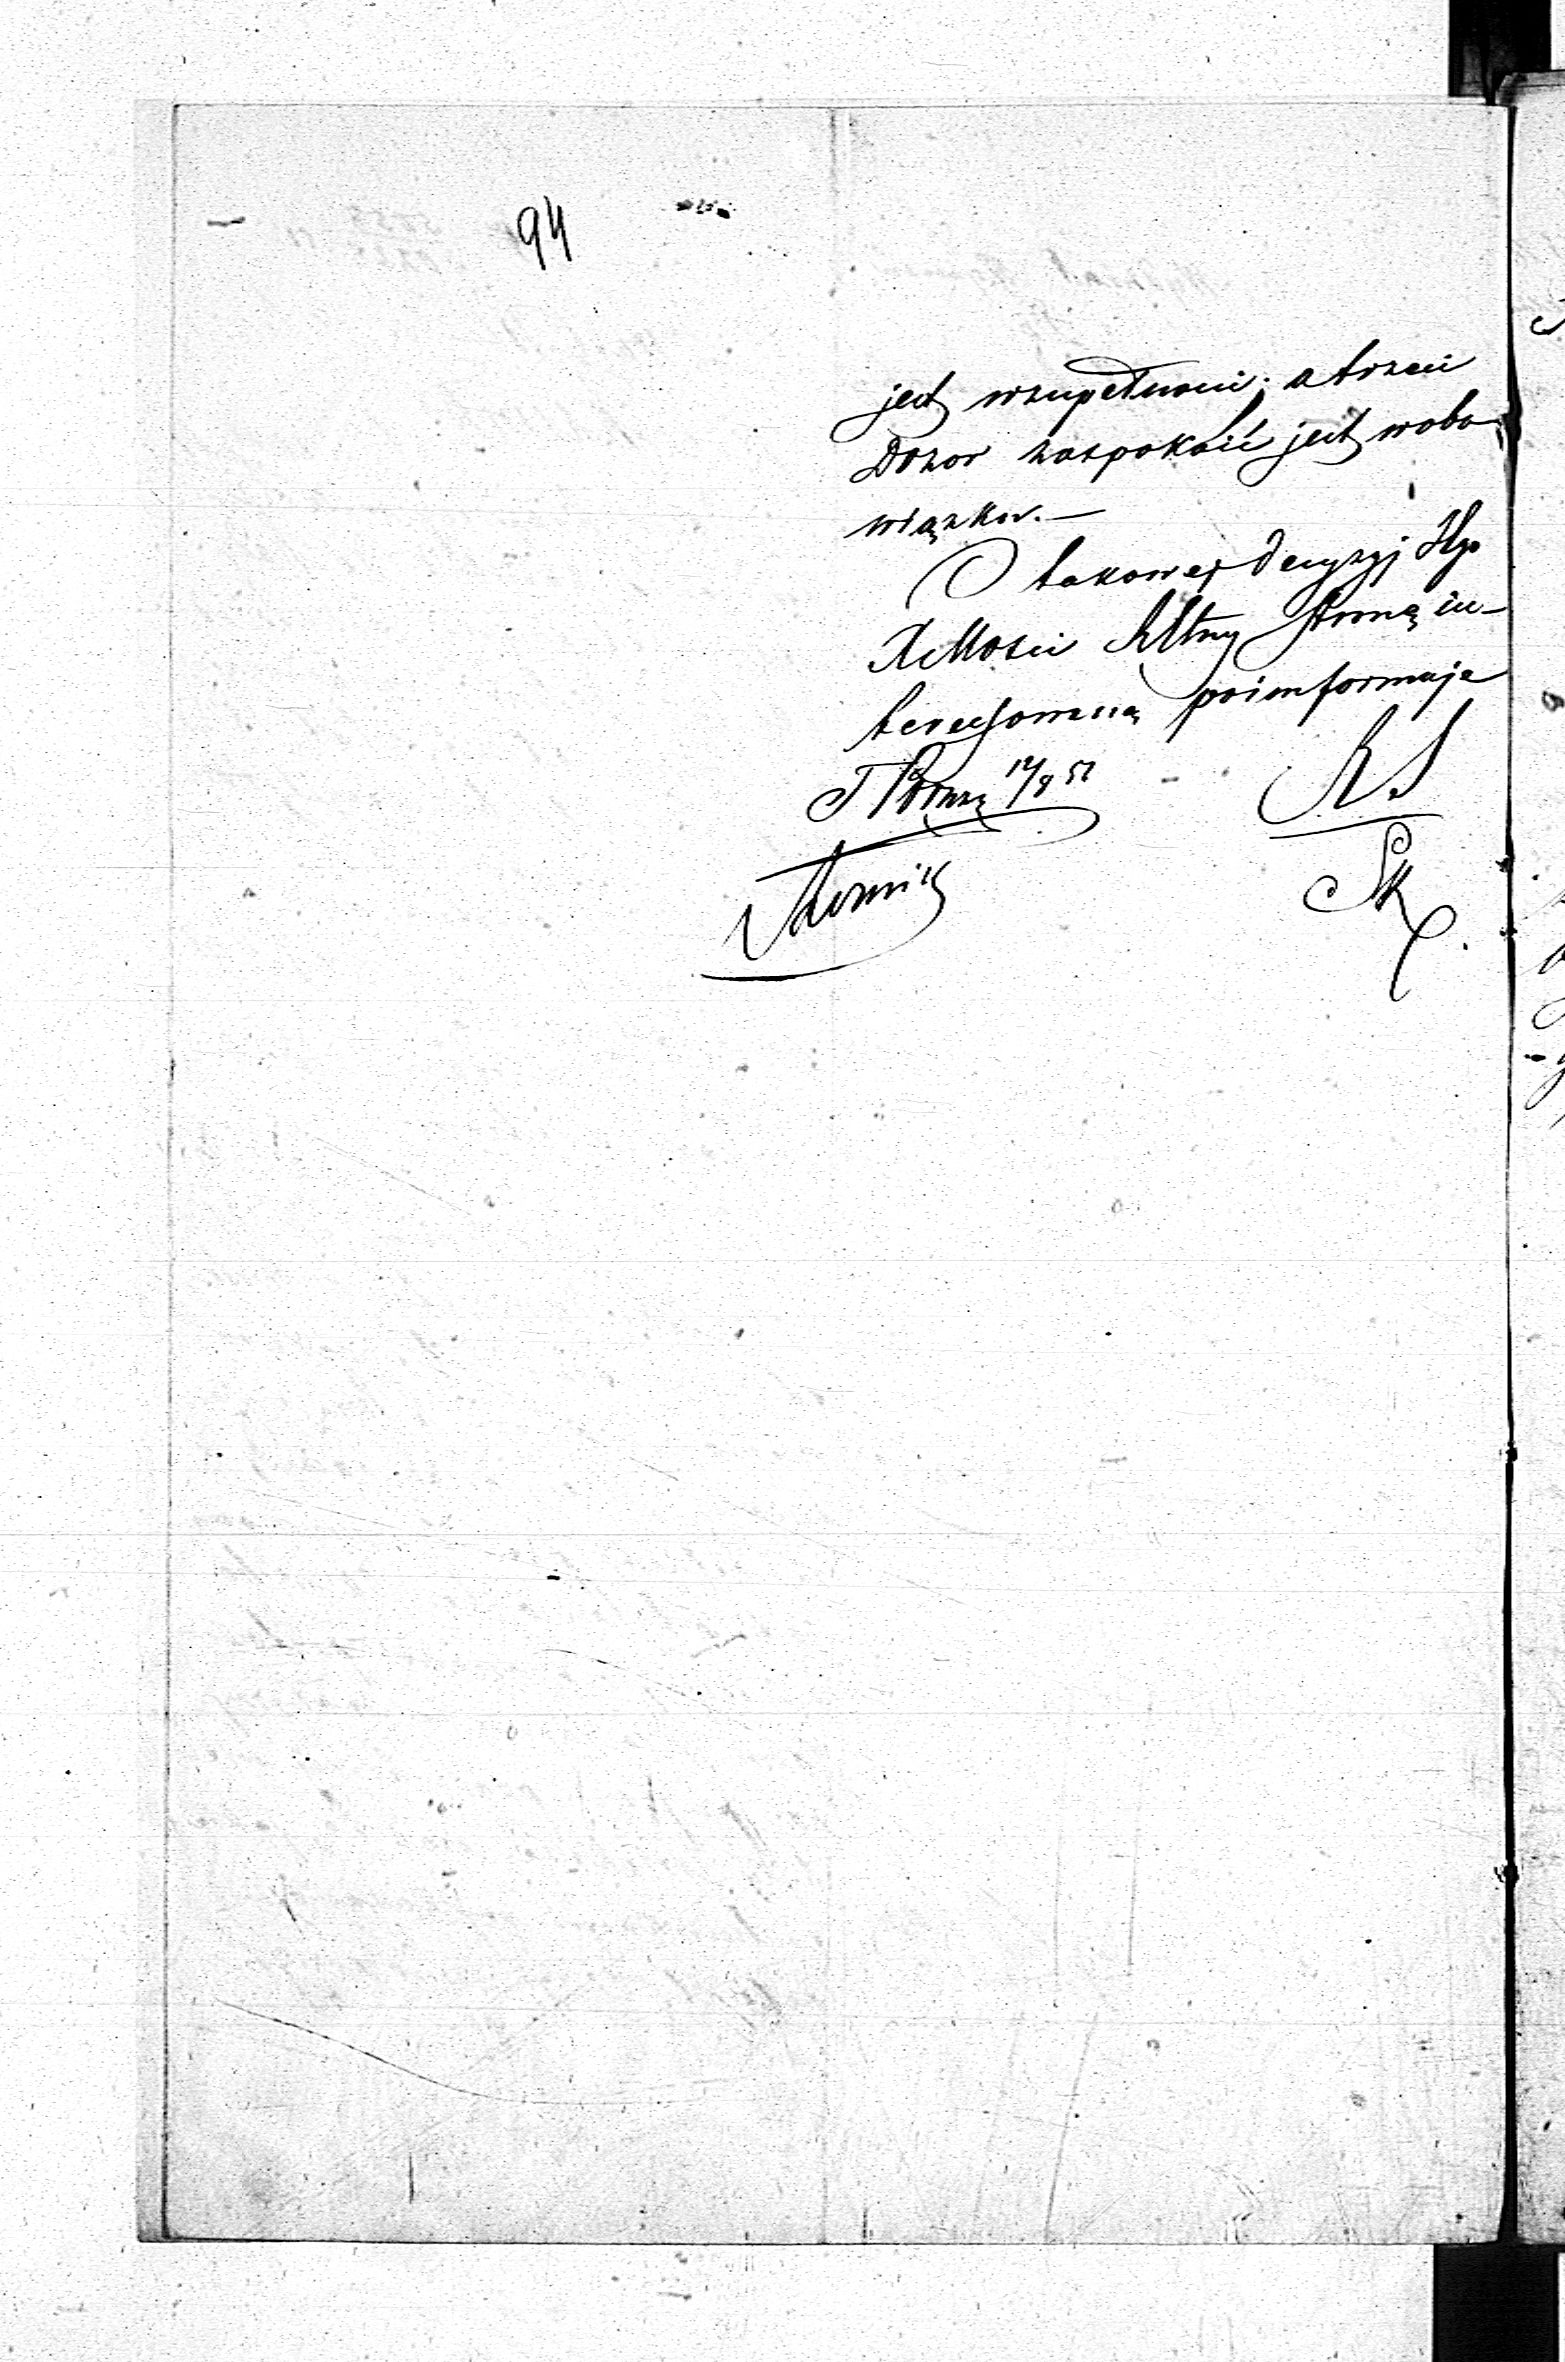 94
jest wzupełności; a trzeci
Dozor zaspokoić jest wobo-
wiązku. —
O takowej decyzyi Wgo
XMości stronę in-
teressowaną poinformuje
17/9 51
RS
SK